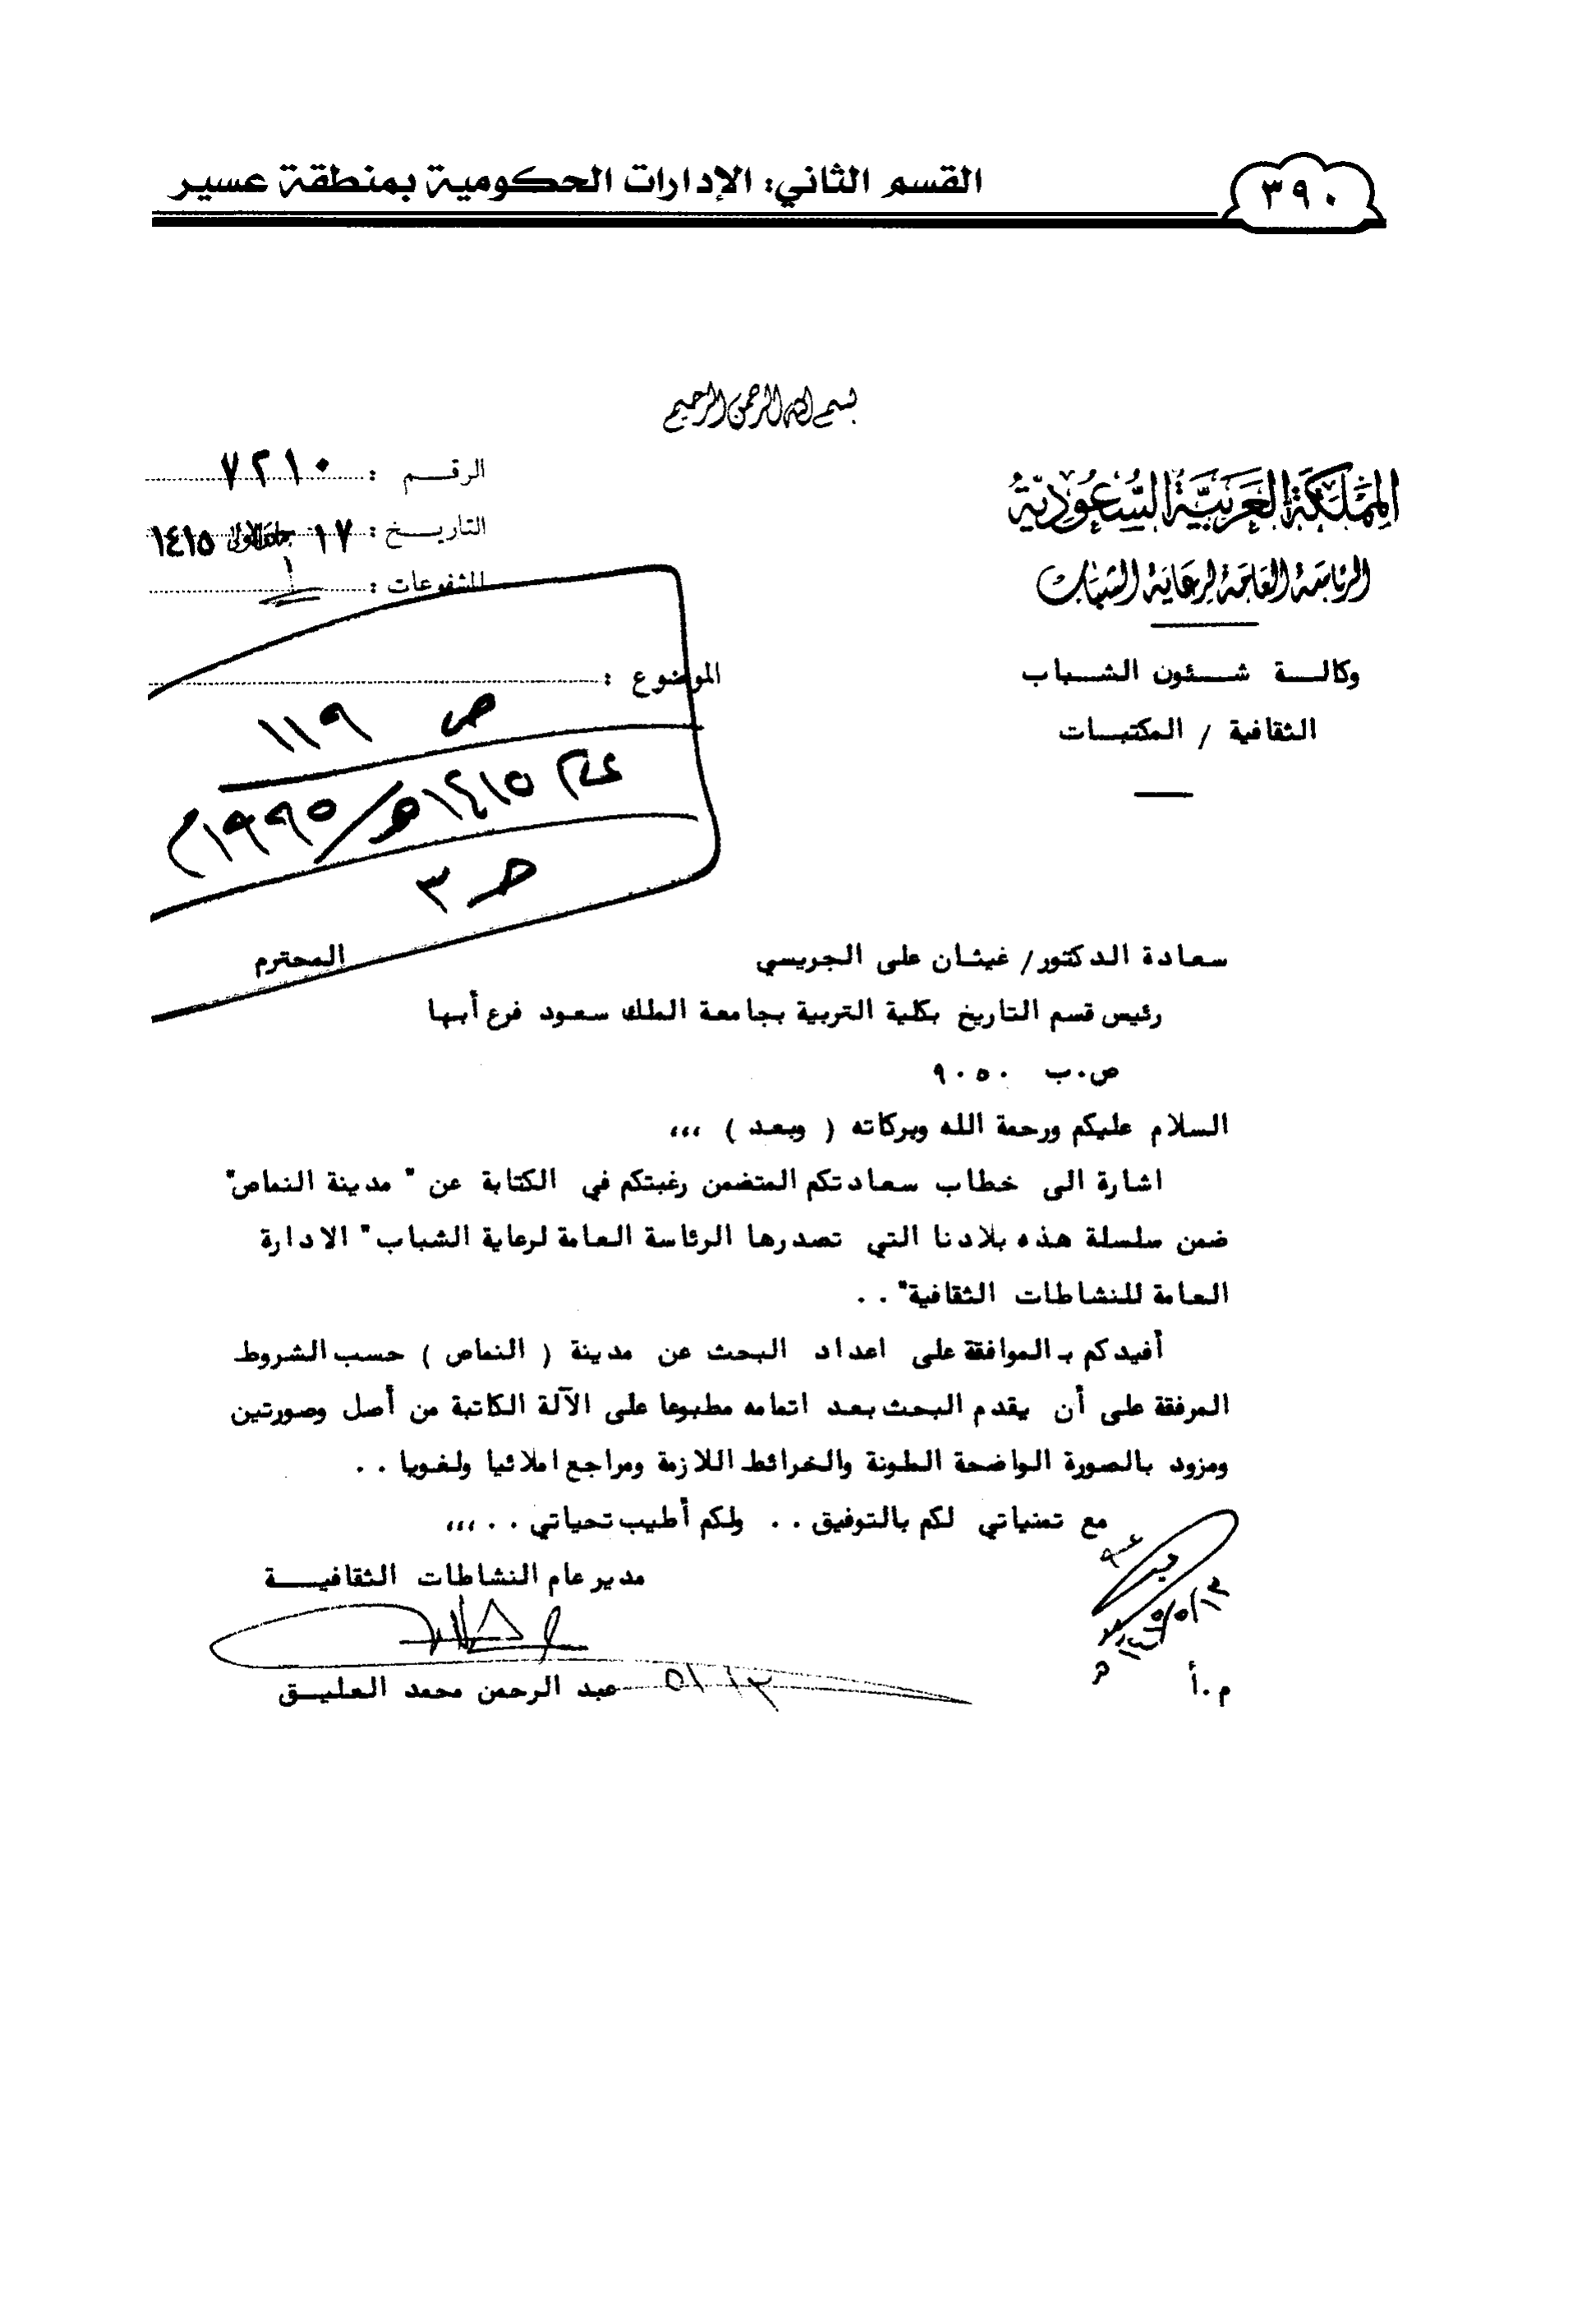 القسم الثاني: الإدارات الحكومية بمنطقة عسير
٣٩٠
بسم الله الرحمن الرحيم
المملكة العربية السعودية
الرئاسة العامة لرعاية الشباب
وكالة شئون الشباب
الثقافية / المكتبات
الرقم : ٧٢١٠
التاريخ : ١٧ جمادى الأولى ١٤١٥
المشفوعات : ١
الموضوع :
ص ١١٩
عام ١٤١٥هـ/١٩٩٥م
حـ ٣
سعادة الدكتور/ غيثان على الجريسي المحترم
رئيس قسم التاريخ بكلية التربية بجامعة الملك سعود فرع أبها
ص.ب ٩٠٥٠
السلام عليكم ورحمة الله وبركاته ( وبعد ) ،،،
اشارة الى خطاب سعادتكم المتضمن رغبتكم في الكتابة عن " مدينة النماص"
ضمن سلسلة هذه بلادنا التي تصدرها الرئاسة العامة لرعاية الشباب" الادارة
العامة للنشاطات الثقافية" . .
أفيدكم بـ الموافقة على اعداد البحث عن مدينة ( النماص ) حسب الشروط
المرفقة على أن يقدم البحث بعد اتمامه مطبوعا على الآلة الكاتبة من أصل وصورتين
ومزود بالصورة الواضحة الملونة والخرائط اللازمة ومراجع املائيا ولغويا . .
مع تمنياتي لكم بالتوفيق . . ولكم أطيب تحياتي . . ،،،
مدير عام النشاطات الثقافية
عبد الرحمن محمد العليق
٥/١٣
م.أ